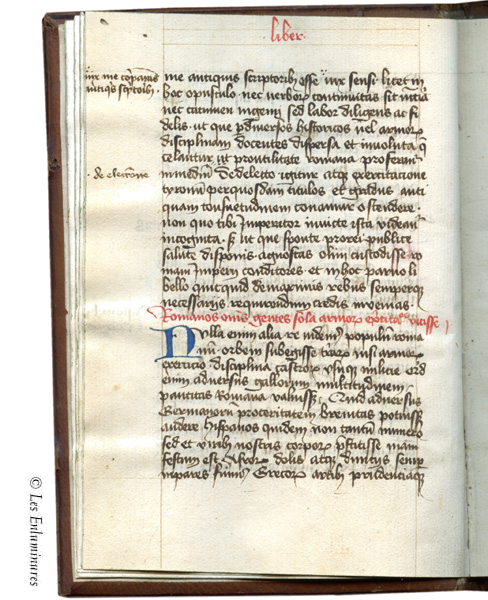 liber
me antiquis scriptoribus esse
hoc opusculo nec verborum continuitas sit
nec tacumen ingenij sed labor diligens ac fi
delis. ut que p diversos historicos vel armorum
disciplinam docentes dispersa et involuta
celantur
De delecto igitur atque exercitatione
tyronum per quosdam titulos et gradus anti
quam consuetudinem conamur ostendere
non quo tibi Imperator invicte ista videantur
incognita. sed ut que sponte pro rei publice
salute disponis. agnoscas olim custodisse ro
mani Imperij conditores. et in hoc parvo li
bello quicquid de maximis rebus semperque
necessarijs requirendum credis invenias.
Romanos omnes gentes sola armorum vicisse
Nulla enim alia re videmus populum roma
num orbem subegisse terrarum nisi armorum
exercicio disciplina castrorum usuque milicie
enim adversus gallorum multitudinem
paucitas Romana valuisset. Quid adversus
Germanorum proceritatem brevitas potuisset
audere hispanos quidem non tantum numero
sed et viribus nostris corporum prestitisse mani
festum est. Afrorum dolis atque divitijs semper
impares fuimus. Grecorum artibus prudentiaque
de electione
© Les Enluminures